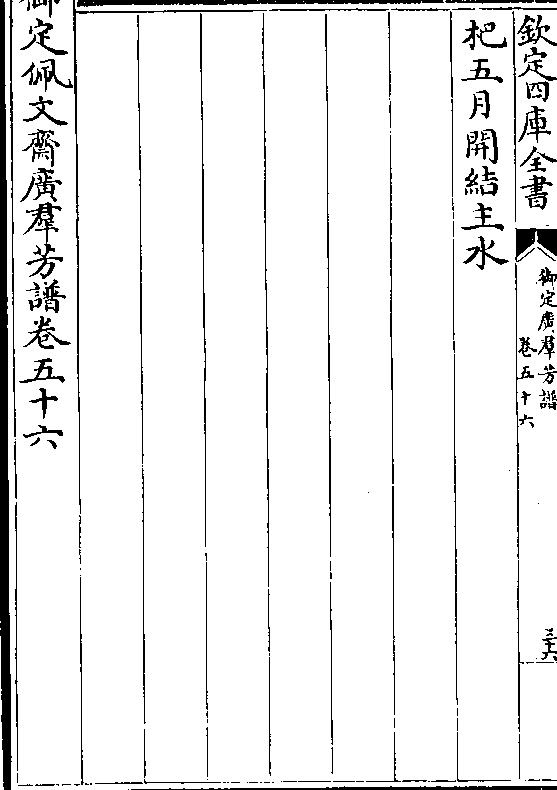 欽定四庫全書
御定廣羣芳譜
卷五十六
三十六
杷五月開結主水
御定佩文齋廣羣芳譜卷五十六